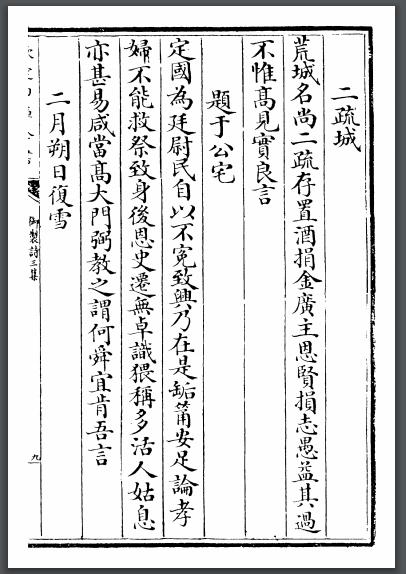 二疏城
荒城名尚二疏存置酒捐金廣主恩賢損志愚益其過
不惟髙見實良言
題于公宅
定國為廷尉民自以不冤致興乃在是缿筩安足論孝
婦不能救祭致身後恩史遷無卓識猥稱多活人姑息
亦甚易咸當髙大門弼教之謂何舜宜肯吾言
二月朔日復雪
御製詩三集
九